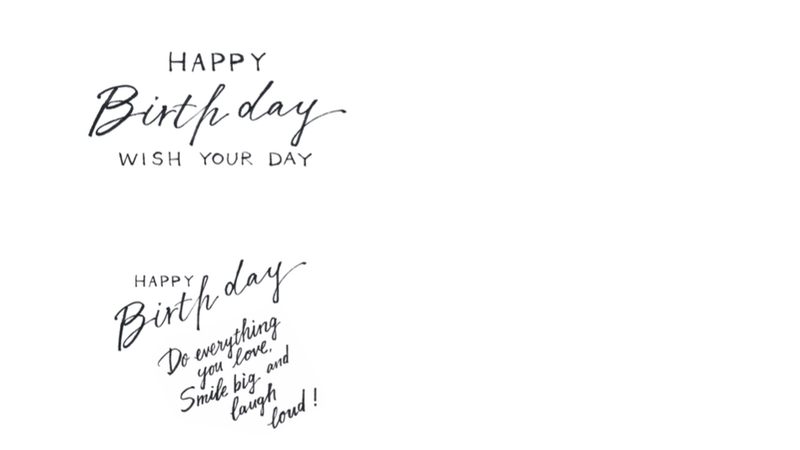 HAPPY
Birthday
WISH YOUR DAY
HAPPY
Birthday
Do everything
you love.
Smile big and
laugh
loud!